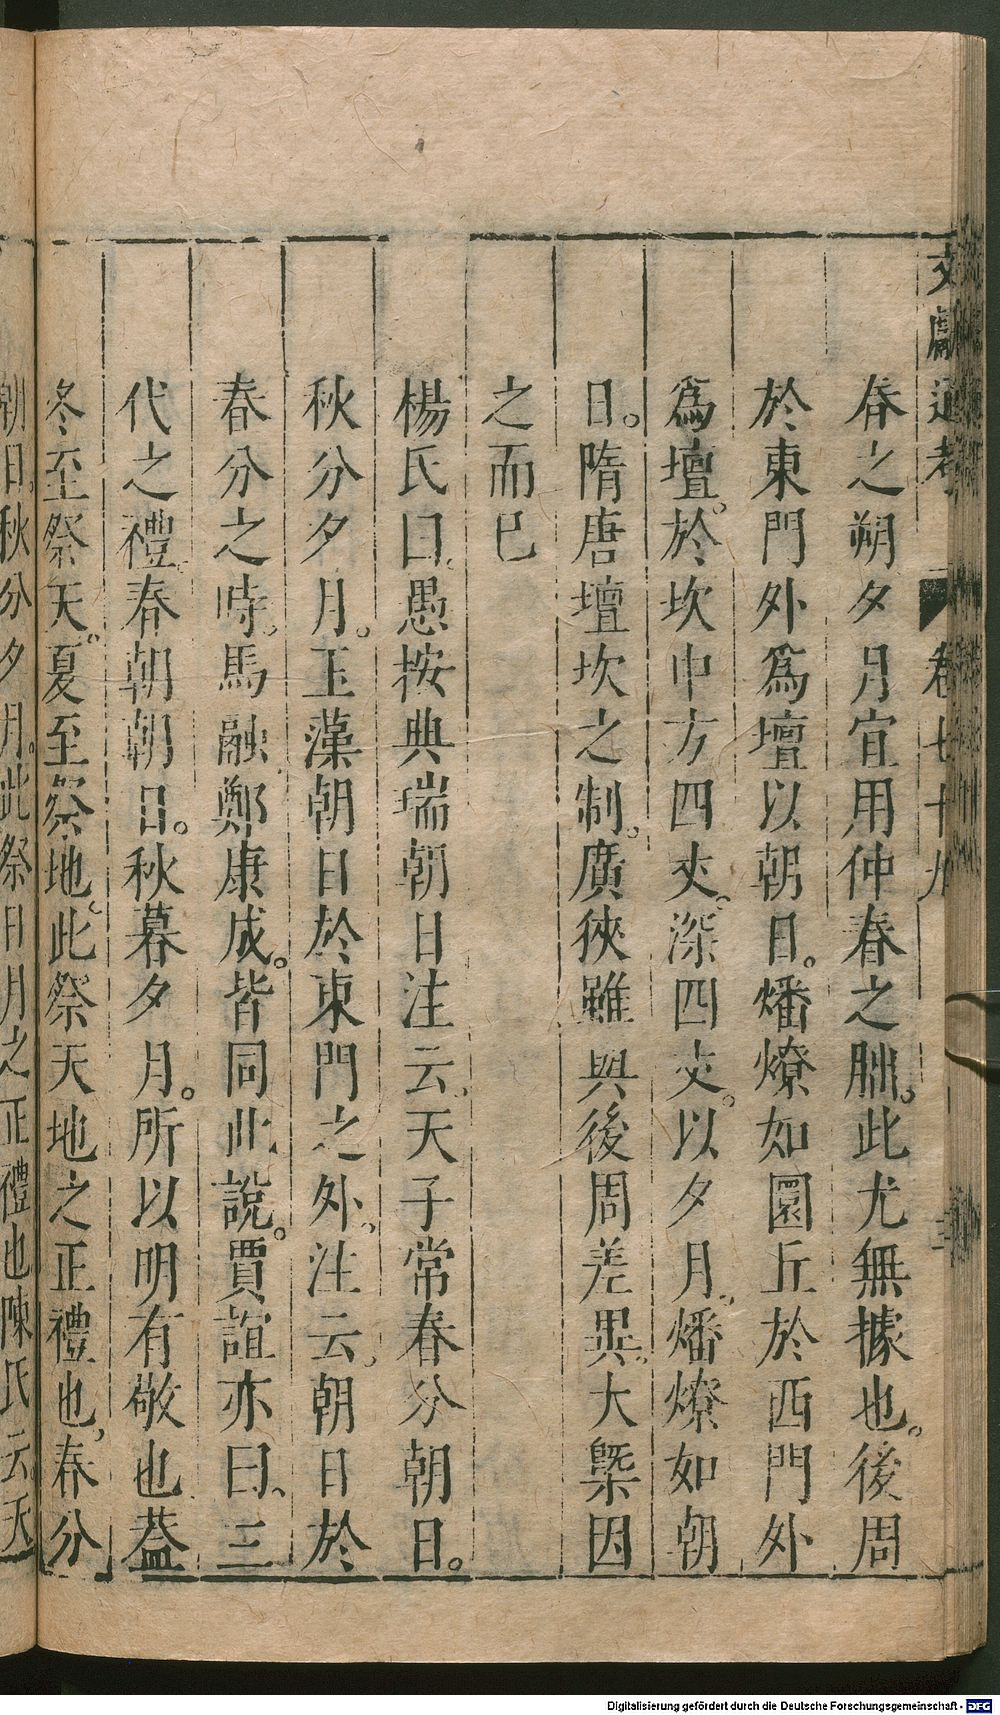 文獻通考 卷七十九
春之朔夕月宜用仲春之朏此尤無據也。後周
於東門外爲壇以朝日。燔燎如圜丘於西門外
爲壇。於坎中方四丈。深四丈。以夕月。燔燎如朝
日。隋唐壇坎之制。廣狹雖與後周差異。大槩因
之而已
楊氏曰愚按典瑞朝日注云天子常春分朝日。
秋分夕月。玉藻朝日於東門之外。注云。朝日於
春分之時。馬融鄭康成。皆同此說。賈誼亦曰、三
代之禮。春朝朝日。秋暮夕月。所以明有敬也葢
冬至祭天。夏至祭地。此祭天地之正禮也，春分
朝日。秋分夕月。此祭日月之正禮也陳氏云天
Digitalisierung gefördert durch die Deutsche Forschungsgemeinschaft - DFG